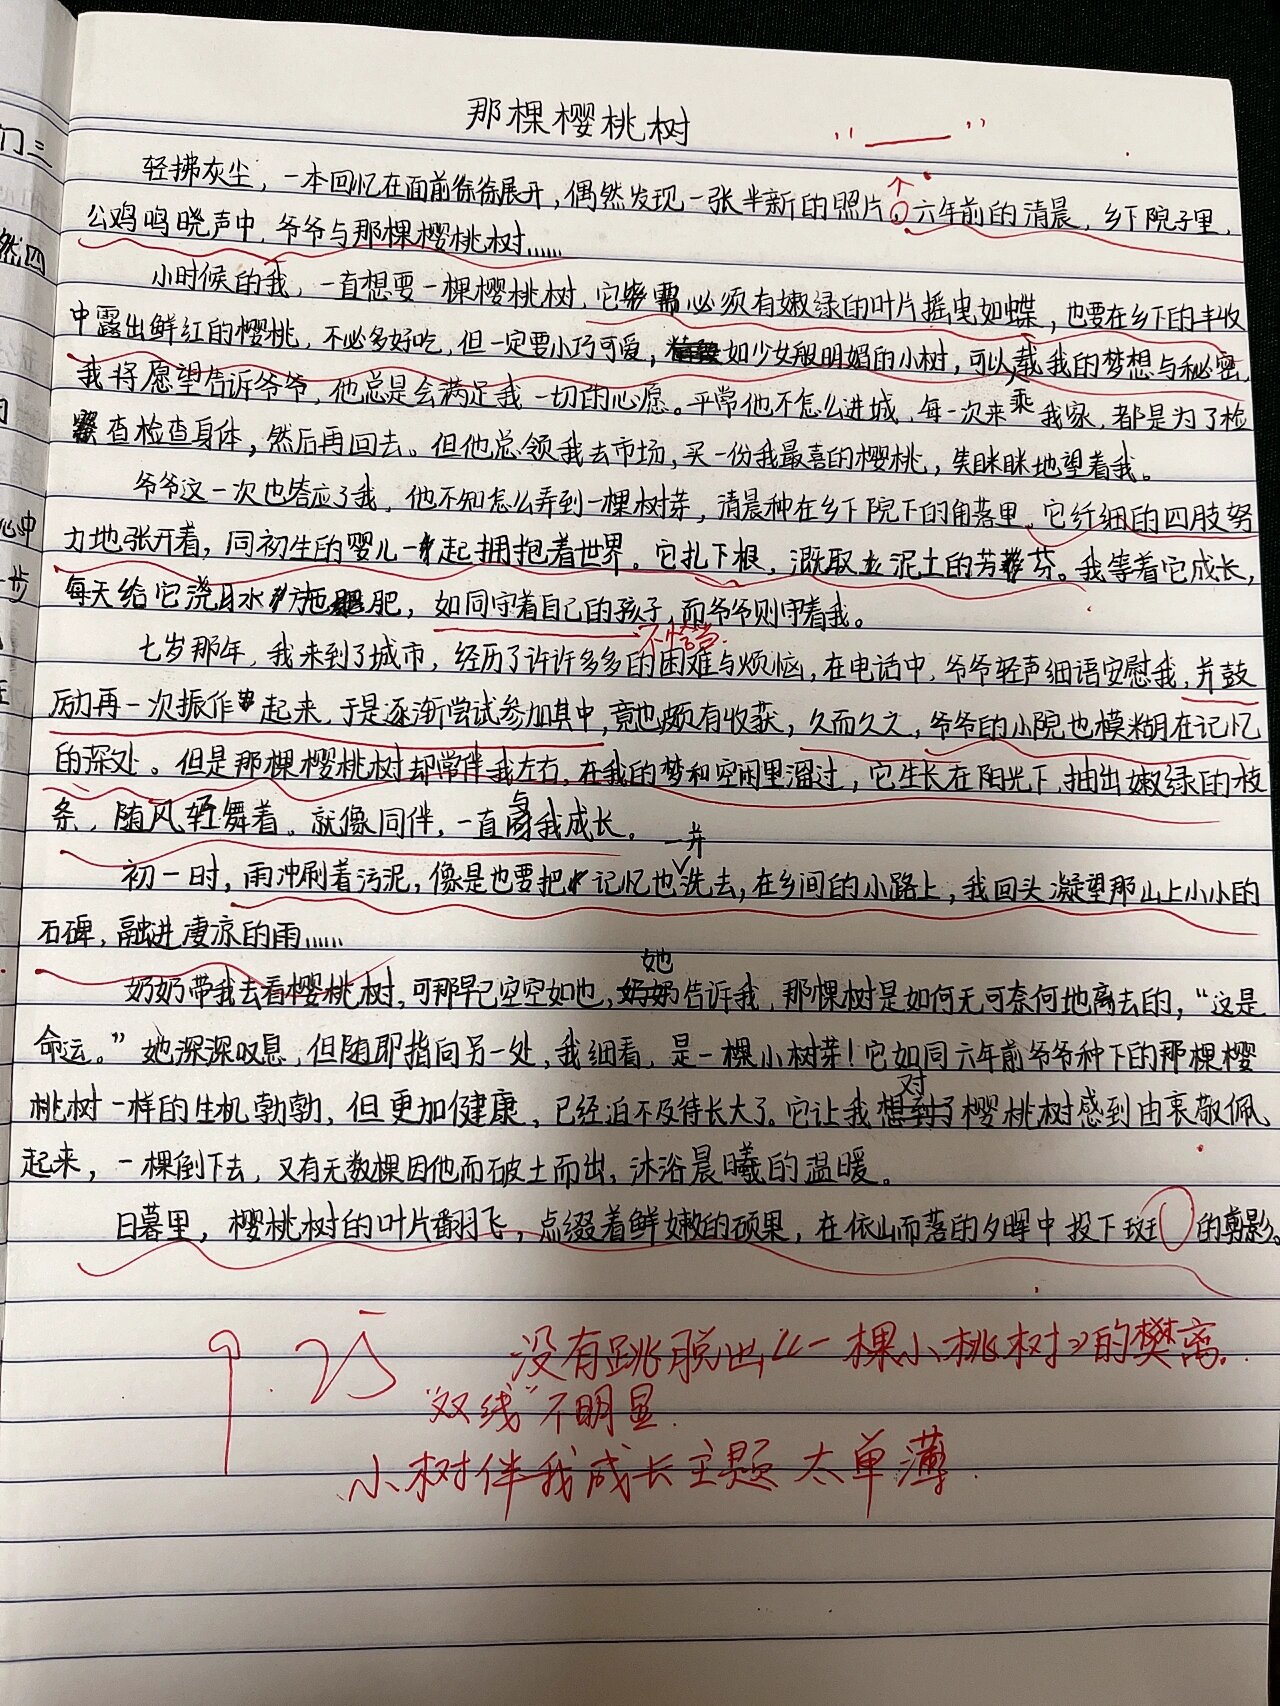 那棵樱桃树
“ — ”
轻拂灰尘，一本回忆在面前徐徐展开，偶然发现一张半新的照片，六年前的清晨，乡下院子里，
公鸡鸣晓声中，爷爷与那棵樱桃树……
小时候的我，一直想要一棵樱桃树，它必须有嫩绿的叶片摇曳如蝶，也要在乡下的丰收
中露出鲜红的樱桃，不必多好吃，但一定要小巧可爱，如少女般明媚的小树，可以载我的梦想与秘密，
我将愿望告诉爷爷，他总是会满足我一切的心愿。平常他不怎么进城，每一次来乘我家，都是为了检
查检查身体，然后再回去。但他总领我去市场，买一份我最喜的樱桃，笑眯眯地望着我。
爷爷这一次也答应了我，他不知怎么弄到一棵树芽，清晨种在乡下院下的角落里，它纤细的四肢努
力地张开着，同初生的婴儿一起拥抱着世界。它扎下根，溉取泥土的芳芬。我等着它成长，
每天给它浇水施肥，如同守着自己的孩子，而爷爷则守着我。
不恰当.
七岁那年，我来到了城市，经历了许许多多的困难与烦恼，在电话中，爷爷轻声细语安慰我，并鼓
励再一次振作起来，于是逐渐尝试参加其中，竟也颇有收获，久而久之，爷爷的小院也模糊在记忆
的深处。但是那棵樱桃树却常伴我左右，在我的梦和空闲里溜过，它生长在阳光下，抽出嫩绿的枝
条，随风轻舞着。就像同伴，一直与我成长。
初一时，雨冲刷着污泥，像是也要把记忆也一并洗去，在乡间的小路上，我回头凝望那山上小小的
石碑，融进凄凉的雨……
奶奶带我去看樱桃树，可那早已空空如也，她告诉我，那棵树是如何无可奈何地离去的，“这是
命运。”她深深叹息，但随即指向另一处，我细看，是一棵小树芽！它如同六年前爷爷种下的那棵樱
桃树一样的生机勃勃，但更加健康，已经迫不及待长大了。它让我对樱桃树感到由衷敬佩
起来，一棵倒下去，又有无数棵因他而破土而出，沐浴晨曦的温暖。
日暮里，樱桃树的叶片翩飞，点缀着鲜嫩的硕果，在依山而落的夕晖中投下斑 的剪影。
没有跳脱出《一棵小桃树》的樊离.
“双线”不明显.
小树伴我成长主题太单薄.